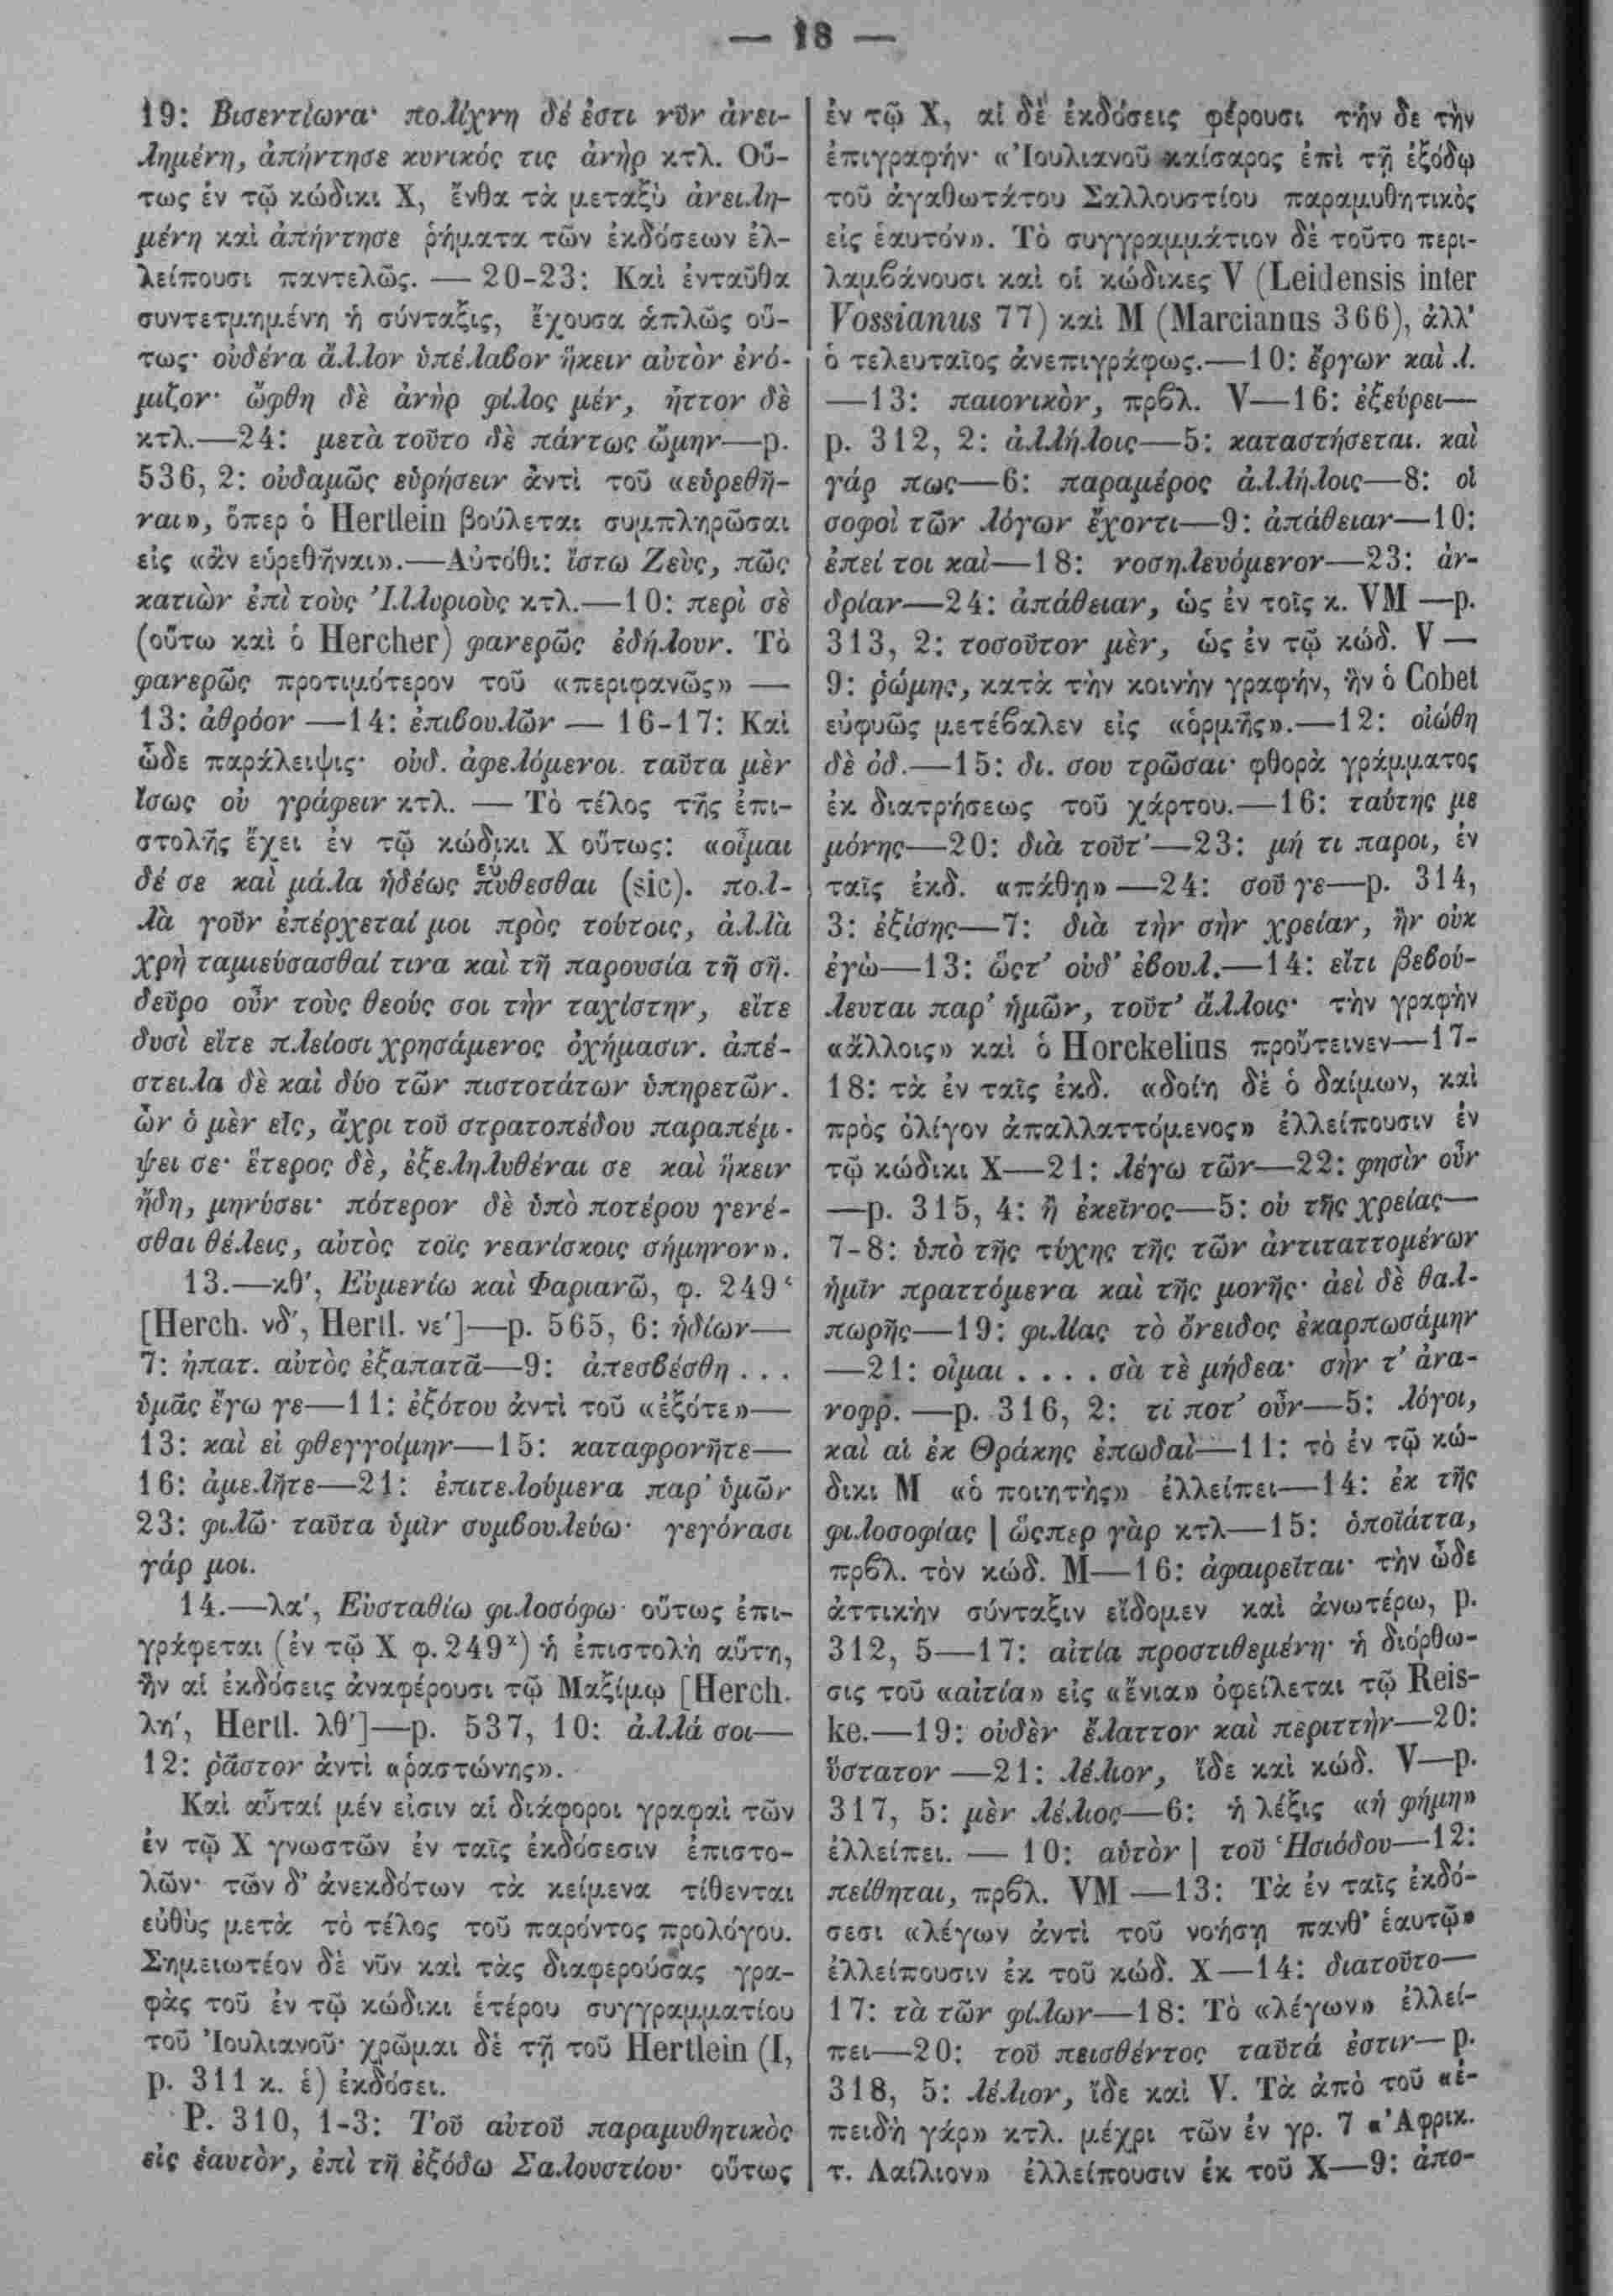 — 18 —
19: Βισεντίωνα· πολίχνη δέ ἐστι νῦν ἀνει-
λημένη, ἀπήντησε κυνικός τις ἀνὴρ κτλ. Οὕ-
τως ἐν τῷ κώδικι X, ἔνθα τὰ μεταξὺ ἀνειλη-
μένη καὶ ἀπήντησε ῥήματα τῶν ἐκδόσεων ἐλ-
λείπουσι παντελῶς. — 20-23: Καὶ ἐνταῦθα
συντετμημένη ἡ σύνταξις, ἔχουσα ἁπλῶς οὕ-
τως· οὐδένα ἄλλον ὑπέλαβον ἥκειν αὐτὸν ἐνό-
μιζον· ὤφθη δὲ ἀνὴρ φίλος μέν, ἧττον δὲ
κτλ.—24: μετὰ τοῦτο δὲ πάντως ᾤμην—p.
536, 2: οὐδαμῶς εὑρήσειν ἀντὶ τοῦ «εὑρεθῆ-
ναι», ὅπερ ὁ Hertlein βούλεται συμπληρῶσαι
εἰς «ἂν εὑρεθῆναι».—Αὐτόθι: ἴστω Ζεὺς, πῶς
κατιὼν ἐπὶ τοὺς Ἰλλυριοὺς κτλ.—10: περὶ σὲ
(οὕτω καὶ ὁ Hercher) φανερῶς ἐδήλουν. Τὸ
φανερῶς προτιμότερον τοῦ «περιφανῶς» —
13: ἀθρόον —14: ἐπιβουλῶν — 16-17: Καὶ
ὧδε παράλειψις· οὐδ. ἀφελόμενοι. ταῦτα μὲν
ἴσως οὐ γράφειν κτλ. — Τὸ τέλος τῆς ἐπι-
στολῆς ἔχει ἐν τῷ κώδικι X οὕτως: «οἶμαι
δέ σε καὶ μάλα ἡδέως πύθεσθαι (sic). πολ-
λὰ γοῦν ἐπέρχεταί μοι πρὸς τούτοις, ἀλλὰ
χρὴ ταμιεύσασθαί τινα καὶ τῆ παρουσία τῆ σῆ.
δεῦρο οὖν τοὺς θεούς σοι τὴν ταχίστην, εἴτε
δυσὶ εἴτε πλείοσι χρησάμενος ὀχήμασιν. ἀπέ-
στειλα δὲ καὶ δύο τῶν πιστοτάτων ὑπηρετῶν.
ὧν ὁ μὲν εἷς, ἄχρι τοῦ στρατοπέδου παραπέμ-
ψει σε· ἕτερος δὲ, ἐξεληλυθέναι σε καὶ ἥκειν
ἤδη, μηνύσει· πότερον δὲ ὑπὸ ποτέρου γενέ-
σθαι θέλεις, αὐτὸς τοῖς νεανίσκοις σήμηνον».
13.—κθ′, Εὐμενίω καὶ Φαριανῶ, φ. 249
[Herch. νδ′, Hertl. νε′]—p. 565, 6: ἡδίων—
7: ἠπατ. αὐτὸς ἐξαπατᾶ—9: ἀπεσβέσθη ...
ὑμᾶς ἔγω γε—11: ἐξότου ἀντὶ τοῦ «ἐξότε»—
13: καὶ εἰ φθεγγοίμην—15: καταφρονῆτε—
16: ἀμελῆτε—21: ἐπιτελούμενα παρ' ὑμῶν
23: φιλῶ· ταῦτα ὑμῖν συμβουλεύω· γεγόνασι
γάρ μοι.
14.—λα′, Εὐσταθίω φιλοσόφω· οὕτως ἐπι-
γράφεται (ἐν τῷ X φ. 249ᵡ) ἡ ἐπιστολὴ αὕτη,
ἣν αἱ ἐκδόσεις ἀναφέρουσι τῷ Μαξίμῳ [Herch.
λη′, Hertl. λθ′]—p. 537, 10: ἀλλά σοι—
12: ῥᾶστον ἀντὶ «ῥαστώνης».
Καὶ αὗταί μέν εἰσιν αἱ διάφοροι γραφαὶ τῶν
ἐν τῷ X γνωστῶν ἐν ταῖς ἐκδόσεσιν ἐπιστο-
λῶν· τῶν δ' ἀνεκδότων τὰ κείμενα τίθενται
εὐθὺς μετὰ τὸ τέλος τοῦ παρόντος προλόγου.
Σημειωτέον δὲ νῦν καὶ τὰς διαφερούσας γρα-
φὰς τοῦ ἐν τῷ κώδικι ἑτέρου συγγραμματίου
τοῦ Ἰουλιανοῦ· χρῶμαι δὲ τῇ τοῦ Hertlein (I,
p. 311 κ. ἑ) ἐκδόσει.
P. 310, 1-3: Τοῦ αὐτοῦ παραμυθητικὸς
εἰς ἑαυτὸν, ἐπὶ τῆ ἐξόδω Σαλουστίου· οὕτως
ἐν τῷ X, αἱ δὲ ἐκδόσεις φέρουσι τήν δε τὴν
ἐπιγραφήν· «Ἰουλιανοῦ καίσαρος ἐπὶ τῇ ἐξόδῳ
τοῦ ἀγαθωτάτου Σαλλουστίου παραμυθητικὸς
εἰς ἑαυτόν». Τὸ συγγραμμάτιον δὲ τοῦτο περι-
λαμβάνουσι καὶ οἱ κώδικες V (Leidensis inter
Vossianus 77) καὶ M (Marcianus 366), ἀλλ'
ὁ τελευταῖος ἀνεπιγράφως.—10: ἔργων καὶ λ.
—13: παιονικὸν, πρβλ. V—16: ἐξεύρει—
p. 312, 2: ἀλλήλοις—5: καταστήσεται. καὶ
γάρ πως—6: παραμέρος ἀλλήλοις—8: οἱ
σοφοὶ τῶν λόγων ἔχοντι—9: ἀπάθειαν—10:
ἐπεί τοι καὶ—18: νοσηλευόμενον—23: ἀν-
δρίαν—24: ἀπάθειαν, ὡς ἐν τοῖς κ. VM —p.
313, 2: τοσοῦτον μὲν, ὡς ἐν τῷ κώδ. V —
9: ῥώμης, κατὰ τὴν κοινὴν γραφήν, ἣν ὁ Cobet
εὐφυῶς μετέβαλεν εἰς «ὁρμῆς».—12: οἰώθη
δὲ ὀδ.—15: δι. σου τρῶσαι· φθορὰ γράμματος
ἐκ διατρήσεως τοῦ χάρτου.—16: ταύτης με
μόνης—20: διὰ τοῦτ'—23: μή τι παροι, ἐν
ταῖς ἐκδ. «πάθῃ»—24: σοῦ γε—p. 314,
3: ἐξίσης—7: διὰ τὴν σὴν χρείαν, ἣν οὐκ
ἐγὼ—13: ὥςτ' οὐδ' ἐβουλ.—14: εἴτι βεβού-
λευται παρ' ἡμῶν, τοῦτ' ἄλλοις· τὴν γραφὴν
«ἄλλοις» καὶ ὁ Horckelius προὔτεινεν—17-
18: τὰ ἐν ταῖς ἐκδ. «δοίη δὲ ὁ δαίμων, καὶ
πρὸς ὀλίγον ἀπαλλαττόμενος» ἐλλείπουσιν ἐν
τῷ κώδικι X—21: λέγω τῶν—22: φησὶν οὖν
—p. 315, 4: ἢ ἐκεῖνος—5: οὐ τῆς χρείας—
7-8: ὑπὸ τῆς τύχης τῆς τῶν ἀντιταττομένων
ἡμῖν πραττόμενα καὶ τῆς μονῆς· ἀεὶ δὲ θαλ-
πωρῆς—19: φιλίας τὸ ὄνειδος ἐκαρπωσάμην
—21: οἶμαι .... σὰ τὲ μήδεα· σὴν τ' ἀνα-
νοφρ. —p. 316, 2: τί ποτ' οὖν—5: λόγοι,
καὶ αἱ ἐκ Θράκης ἐπωδαὶ—11: τὸ ἐν τῷ κώ-
δικι M «ὁ ποιητὴς» ἐλλείπει—14: ἐκ τῆς
φιλοσοφίας | ὥςπερ γὰρ κτλ—15: ὁποῖάττα,
πρβλ. τὸν κώδ. M—16: ἀφαιρεῖται· τὴν ὧδε
ἀττικὴν σύνταξιν εἴδομεν καὶ ἀνωτέρω, p.
312, 5—17: αἰτία προστιθεμένη· ἡ διόρθω-
σις τοῦ «αἰτία» εἰς «ἔνια» ὀφείλεται τῷ Reis-
ke.—19: οὐδὲν ἔλαττον καὶ περιττὴν—20:
ὕστατον —21: λέλιον, ἴδε καὶ κώδ. V—p.
317, 5: μὲν λέλιος—6: ἡ λέξις «ἡ φήμη»
ἐλλείπει. — 10: αὐτὸν | τοῦ Ἡσιόδου—12:
πείθηται, πρβλ. VM —13: Τὰ ἐν ταῖς ἐκδό-
σεσι «λέγων ἀντὶ τοῦ νοήσῃ πανθ' ἑαυτῷ»
ἐλλείπουσιν ἐκ τοῦ κώδ. X—14: διατοῦτο—
17: τὰ τῶν φίλων—18: Τὸ «λέγων» ἐλλεί-
πει—20: τοῦ πεισθέντος ταῦτά ἐστιν—p.
318, 5: λέλιον, ἴδε καὶ V. Τὰ ἀπὸ τοῦ «ἐ-
πειδὴ γάρ» κτλ. μέχρι τῶν ἐν γρ. 7 «Ἀφρικ.
τ. Λαίλιον» ἐλλείπουσιν ἐκ τοῦ X—9: ἀπο-